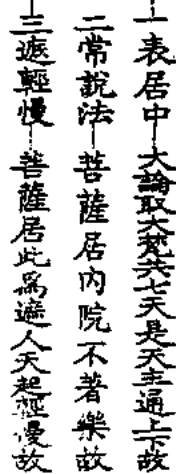 一表居中─大論取大梵共七天是天主通上下故
二常說法─菩薩居內院不著樂故
三遮輕慢─菩薩居此為遮人天起輕慢故